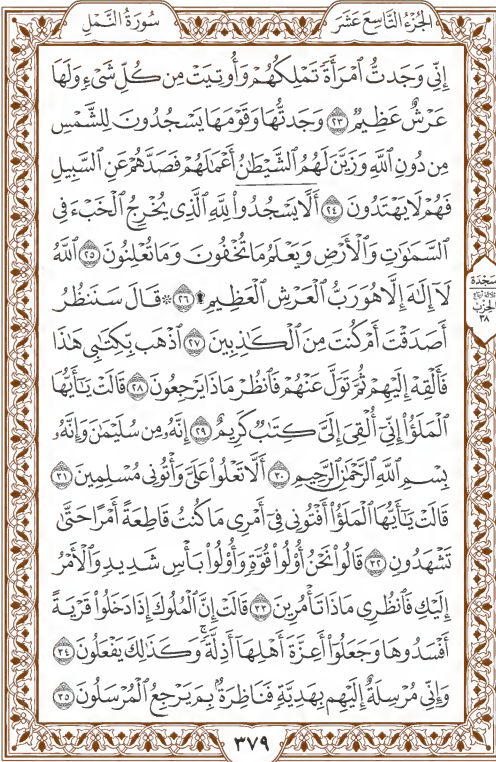 الجزء التاسع عشر
سورة النمل
إِنِّي وَجَدتُّ ٱمْرَأَةً تَمْلِكُهُمْ وَأُوتِيَتْ مِن كُلِّ شَيْءٍ وَلَهَا
عَرْشٌ عَظِيمٌ ٢٣ وَجَدتُّهَا وَقَوْمَهَا يَسْجُدُونَ لِلشَّمْسِ
مِن دُونِ ٱللَّهِ وَزَيَّنَ لَهُمُ ٱلشَّيْطَٰنُ أَعْمَٰلَهُمْ فَصَدَّهُمْ عَنِ ٱلسَّبِيلِ
فَهُمْ لَا يَهْتَدُونَ ٢٤ أَلَّا يَسْجُدُوا۟ لِلَّهِ ٱلَّذِي يُخْرِجُ ٱلْخَبْءَ فِي
ٱلسَّمَٰوَٰتِ وَٱلْأَرْضِ وَيَعْلَمُ مَا تُخْفُونَ وَمَا تُعْلِنُونَ ٢٥ ٱللَّهُ
لَآ إِلَٰهَ إِلَّا هُوَ رَبُّ ٱلْعَرْشِ ٱلْعَظِيمِ ۩ ٢٦ ۞ قَالَ سَنَنظُرُ
أَصَدَقْتَ أَمْ كُنتَ مِنَ ٱلْكَٰذِبِينَ ٢٧ ٱذْهَب بِّكِتَٰبِي هَٰذَا
فَأَلْقِهْ إِلَيْهِمْ ثُمَّ تَوَلَّ عَنْهُمْ فَٱنظُرْ مَاذَا يَرْجِعُونَ ٢٨ قَالَتْ يَٰٓأَيُّهَا
ٱلْمَلَؤُا۟ إِنِّيٓ أُلْقِيَ إِلَيَّ كِتَٰبٌ كَرِيمٌ ٢٩ إِنَّهُۥ مِن سُلَيْمَٰنَ وَإِنَّهُۥ
بِسْمِ ٱللَّهِ ٱلرَّحْمَٰنِ ٱلرَّحِيمِ ٣٠ أَلَّا تَعْلُوا۟ عَلَيَّ وَأْتُونِي مُسْلِمِينَ ٣١
قَالَتْ يَٰٓأَيُّهَا ٱلْمَلَؤُا۟ أَفْتُونِي فِيٓ أَمْرِي مَا كُنتُ قَاطِعَةً أَمْرًا حَتَّىٰ
تَشْهَدُونِ ٣٢ قَالُوا۟ نَحْنُ أُو۟لُوا۟ قُوَّةٍ وَأُو۟لُوا۟ بَأْسٍ شَدِيدٍ وَٱلْأَمْرُ
إِلَيْكِ فَٱنظُرِي مَاذَا تَأْمُرِينَ ٣٣ قَالَتْ إِنَّ ٱلْمُلُوكَ إِذَا دَخَلُوا۟ قَرْيَةً
أَفْسَدُوهَا وَجَعَلُوٓا۟ أَعِزَّةَ أَهْلِهَآ أَذِلَّةً ۖ وَكَذَٰلِكَ يَفْعَلُونَ ٣٤
وَإِنِّي مُرْسِلَةٌ إِلَيْهِم بِهَدِيَّةٍ فَنَاظِرَةٌۢ بِمَ يَرْجِعُ ٱلْمُرْسَلُونَ ٣٥
سجدة
الحزب
٣٨
٣٧٩